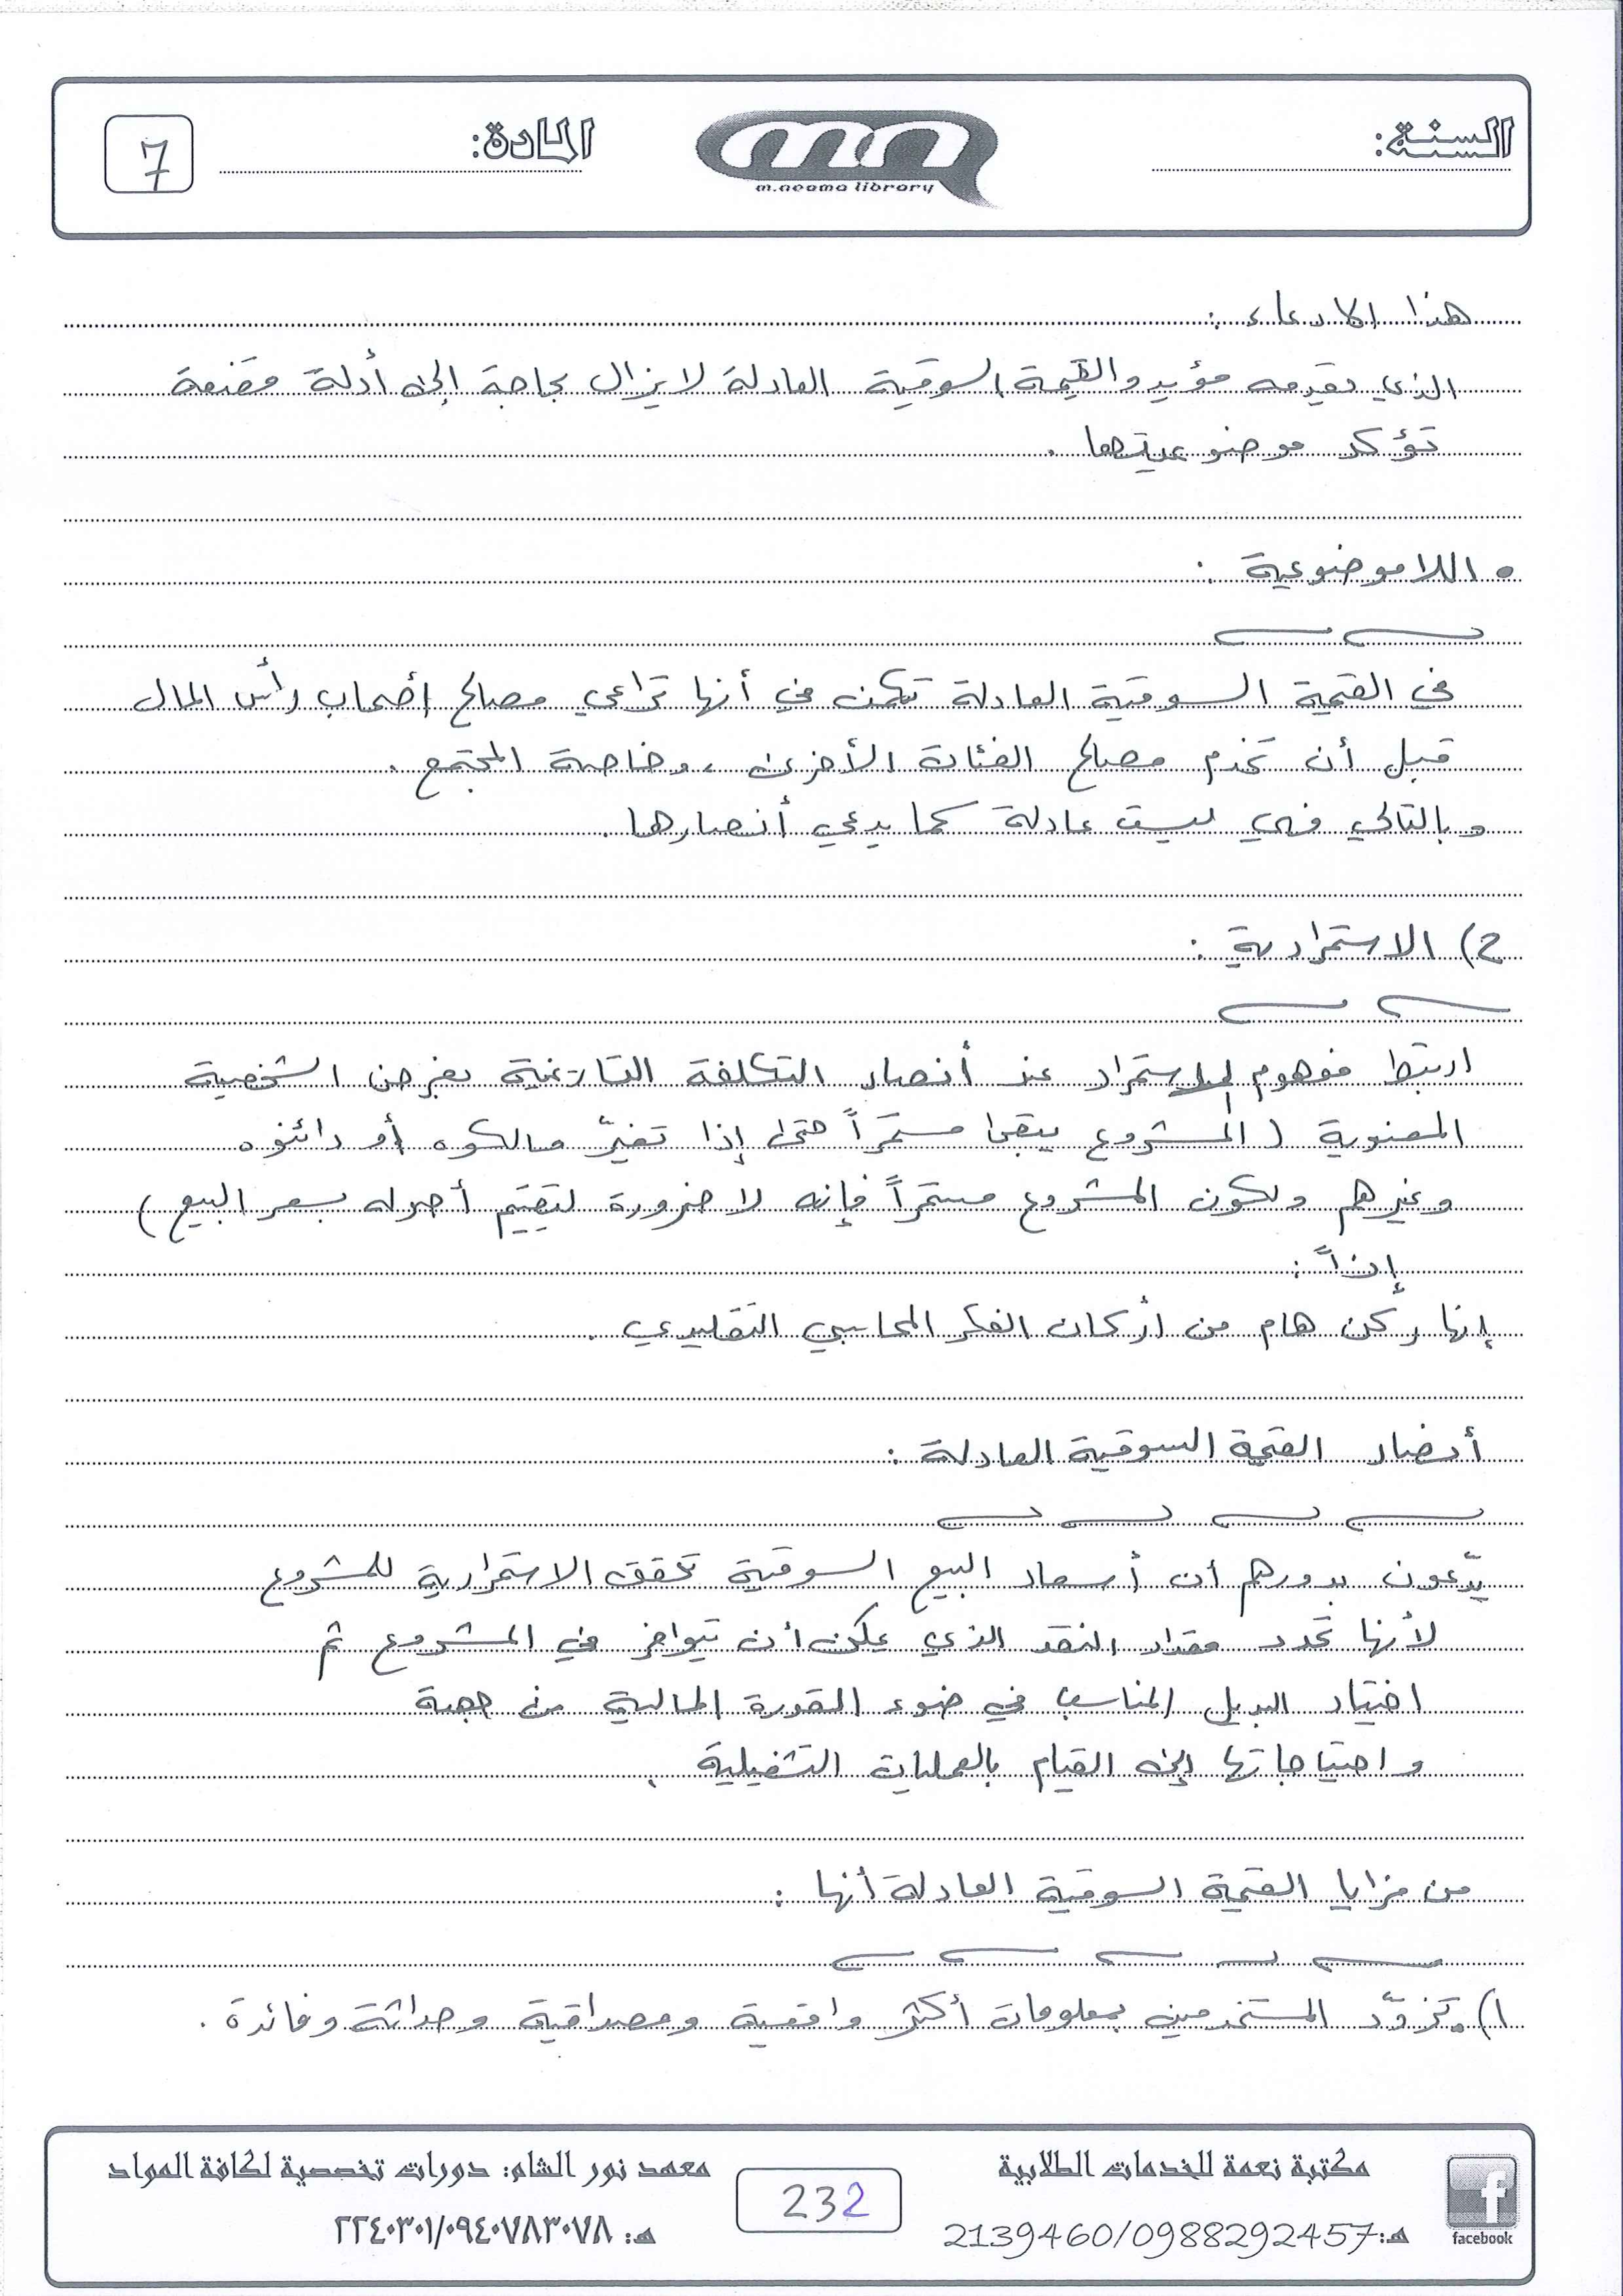 السنة:
m.neama library
المادة:
7
هذا الادعاء :
الذي يقدمه مؤيدو القيمة السوقية العادلة لا يزال بحاجة إلى أدلة مقنعة
تؤكد موضوعيتها .
• اللاموضوعية :
في القيمة السوقية العادلة تكمن في أنها تراعي مصالح أصحاب رأس المال
قبل أن تخدم مصالح الفئات الأخرى ، وخاصة المجتمع .
وبالتالي فهي ليست عادلة كما يدعي أنصارها .
ح) الاستمرارية :
ارتبط مفهوم الاستمرار عند أنصار التكلفة التاريخية بفرض الشخصية
المعنوية ( المشروع يبقى مستمراً حتى إذا تغيّر مالكوه أو دائنوه
وغيرهم ولكون المشروع مستمراً فإنه لا ضرورة لتقييم أصوله بسعر البيع )
إذاً :
إنها ركن هام من أركان الفكر المحاسبي التقليدي .
أنصار القيمة السوقية العادلة :
يدّعون بدورهم أن أسعار البيع السوقية تحقق الاستمرارية للمشروع
لأنها تحدد مقدار النقد الذي يمكن أن يتوافر في المشروع ثم
اختيار البديل المناسب في ضوء القدرة المالية من جهة
واحتياجاتها إلى القيام بالعمليات التشغيلية .
من مزايا القيمة السوقية العادلة أنها :
١) تزوّد المستخدمين بمعلومات أكثر واقعية ومصداقية وحداثة وفائدة .
facebook
مكتبة نعمة للخدمات الطلابية
هـ: 2139460/0988292457
232
معهد نور الشام: دورات تخصصية لكافة المواد
هـ: ٢٢٤٠٣٠١/٠٩٤٠٧٨٣٠٧٨